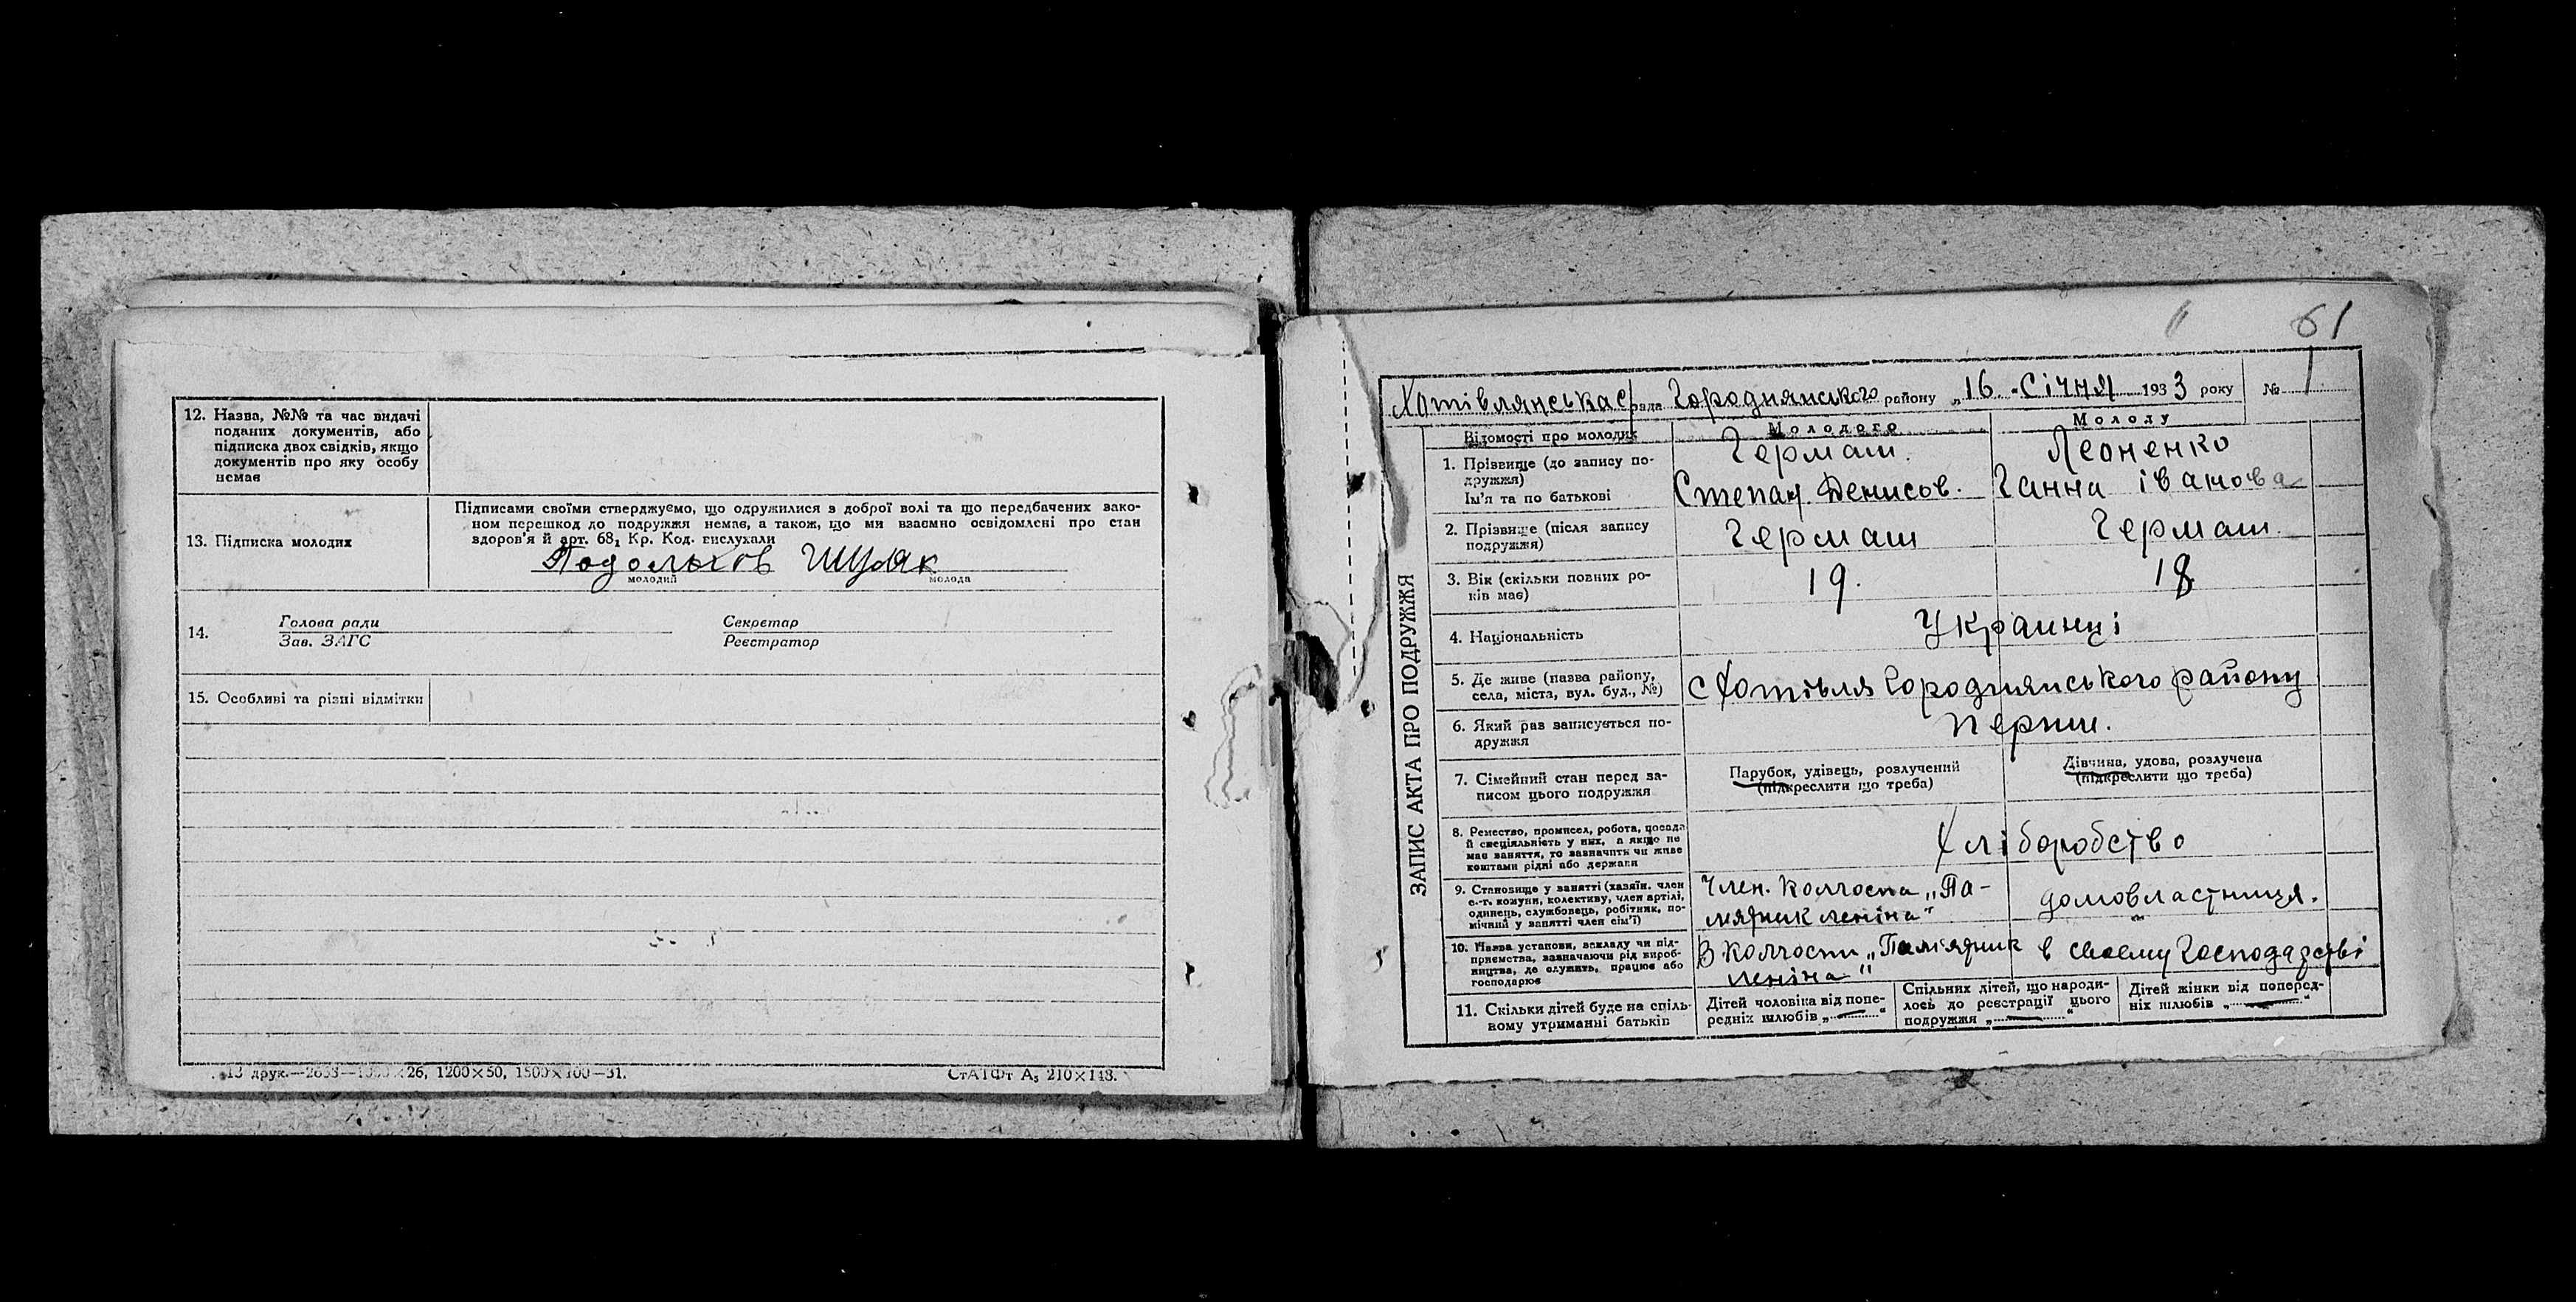 12. Назва, №№ та час видачі
поданих документів, або
підписка двох свідків, якщо
документів про яку особу
немає
13. Підписка молодих
Підписами своїми стверджуємо, що одружилися з доброї волі та що передбачених зако-
ном перешкод до подружжя немає, а також, що ми взаємно освідомлені про стан
здоров'я й арт. 68₁ Кр. Код. вислухали
Шуляк
молодий молода
14.
Голова ради Секретар
Зав. ЗАГС Реєстратор
15. Особливі та різні відмітки
26, 1200×50, 1500×100—31.
СтАТФт А₅ 210×148.
61
Хотівлянська с/рада Городнянського району „16" Січня 1933 року № 1
ЗАПИС АКТА ПРО ПОДРУЖЖЯ
Відомості про молодих Молодого Молоду
1. Прізвище (до запису по-
дружжя)
Ім'я та по батькові
Гермаш. Леоненко
Степан Денисов. Ганна іванова
2. Прізвище (після запису
подружжя)
Гермаш Гермаш.
3. Вік (скільки повних ро-
ків має)
19. 18
4. Національність
Украинці
5. Де живе (назва району,
села, міста, вул. буд., №)
с Хотівля Городнянського району
6. Який раз записується по-
дружжя
перши.
7. Сімейний стан перед за-
писом цього подружжя
Парубок, удівець, розлучений
(підкреслити що треба)
Дівчина, удова, розлучена
(підкреслити що треба)
8. Ремество, промисел, робота, посада
й спеціяльність у них, а якщо не
має заняття, то зазначити чи живе
коштами рідні або держави
Хліборобство
9. Становище у занятті (хазяїн, член
с.-г. комуни, колективу, член артілі,
одинець, службовець, робітник, по-
мічний у занятті член сім'ї)
Член. колгоспа „Па-
мятник леніна"
домовластниця.
10. Назва установи, закладу чи під-
приємства, зазначаючи рід вироб-
ництва, де служить, працює або
господарює
В колгоспи „Памятник
леніна"
в своему господарстві
11. Скільки дітей буде на спіль-
ному утриманні батьків
Дітей чоловіка від попе-
редніх шлюбів „—"
Спільних дітей, що народи-
лось до реєстрації цього
подружжя „—"
Дітей жінки від поперед-
ніх шлюбів „—"